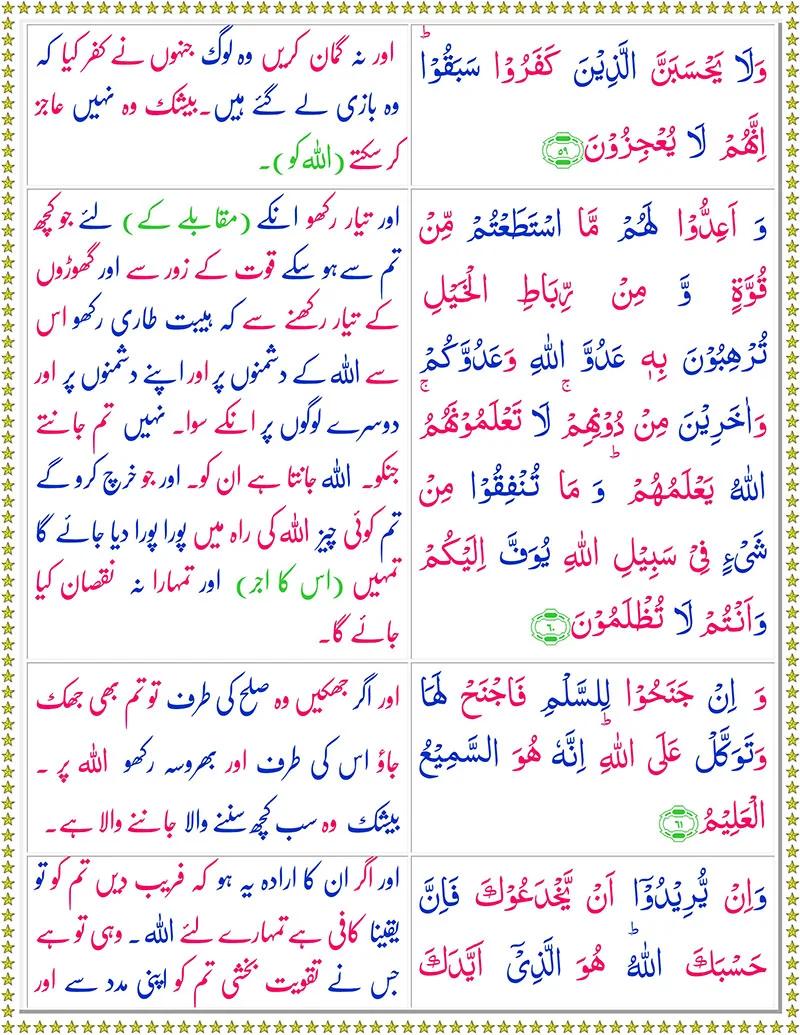 وَلَا يَحْسَبَنَّ الَّذِيْنَ كَفَرُوْا سَبَقُوْا ؕ
اِنَّهُمْ لَا يُعْجِزُوْنَ ﴿۵۹﴾
اور نہ گمان کریں وہ لوگ جنہوں نے کفر کیا کہ
وہ بازی لے گئے ہیں۔ بیشک وہ نہیں عاجز
کر سکتے (اللہ کو)۔
وَ اَعِدُّوْا لَهُمْ مَّا اسْتَطَعْتُمْ مِّنْ
قُوَّةٍ وَّ مِنْ رِّبَاطِ الْخَيْلِ
تُرْهِبُوْنَ بِهٖ عَدُوَّ اللّٰهِ وَعَدُوَّكُمْ
وَاٰخَرِيْنَ مِنْ دُوْنِهِمْ ۚ لَا تَعْلَمُوْنَهُمْ ۚ
اَللّٰهُ يَعْلَمُهُمْ ؕ وَ مَا تُنْفِقُوْا مِنْ
شَىْءٍ فِىْ سَبِيْلِ اللّٰهِ يُوَفَّ اِلَيْكُمْ
وَاَنْتُمْ لَا تُظْلَمُوْنَ ﴿۶۰﴾
اور تیار رکھو انکے (مقابلے کے) لئے جو کچھ
تم سے ہو سکے قوت کے زور سے اور گھوڑوں
کے تیار رکھنے سے کہ ہیبت طاری رکھو اس
سے اللہ کے دشمنوں پر اور اپنے دشمنوں پر اور
دوسرے لوگوں پر انکے سوا۔ نہیں تم جانتے
جنکو۔ اللہ جانتا ہے ان کو۔ اور جو خرچ کرو گے
تم کوئی چیز اللہ کی راہ میں پورا پورا دیا جائے گا
تمہیں (اس کا اجر) اور تمہارا نہ نقصان کیا
جائے گا۔
وَ اِنْ جَنَحُوْا لِلسَّلْمِ فَاجْنَحْ لَهَا
وَتَوَكَّلْ عَلَى اللّٰهِ ؕ اِنَّهٗ هُوَ السَّمِيْعُ
الْعَلِيْمُ ﴿۶۱﴾
اور اگر جھکیں وہ صلح کی طرف تو تم بھی جھک
جاؤ اس کی طرف اور بھروسہ رکھو اللہ پر۔
بیشک وہ سب کچھ سننے والا جاننے والا ہے۔
وَاِنْ يُّرِيْدُوْۤا اَنْ يَّخْدَعُوْكَ فَاِنَّ
حَسْبَكَ اللّٰهُ ؕ هُوَ الَّذِىْۤ اَيَّدَكَ
اور اگر ان کا ارادہ یہ ہو کہ فریب دیں تم کو تو
یقینا کافی ہے تمہارے لئے اللہ۔ وہی تو ہے
جس نے تقویت بخشی تم کو اپنی مدد سے اور